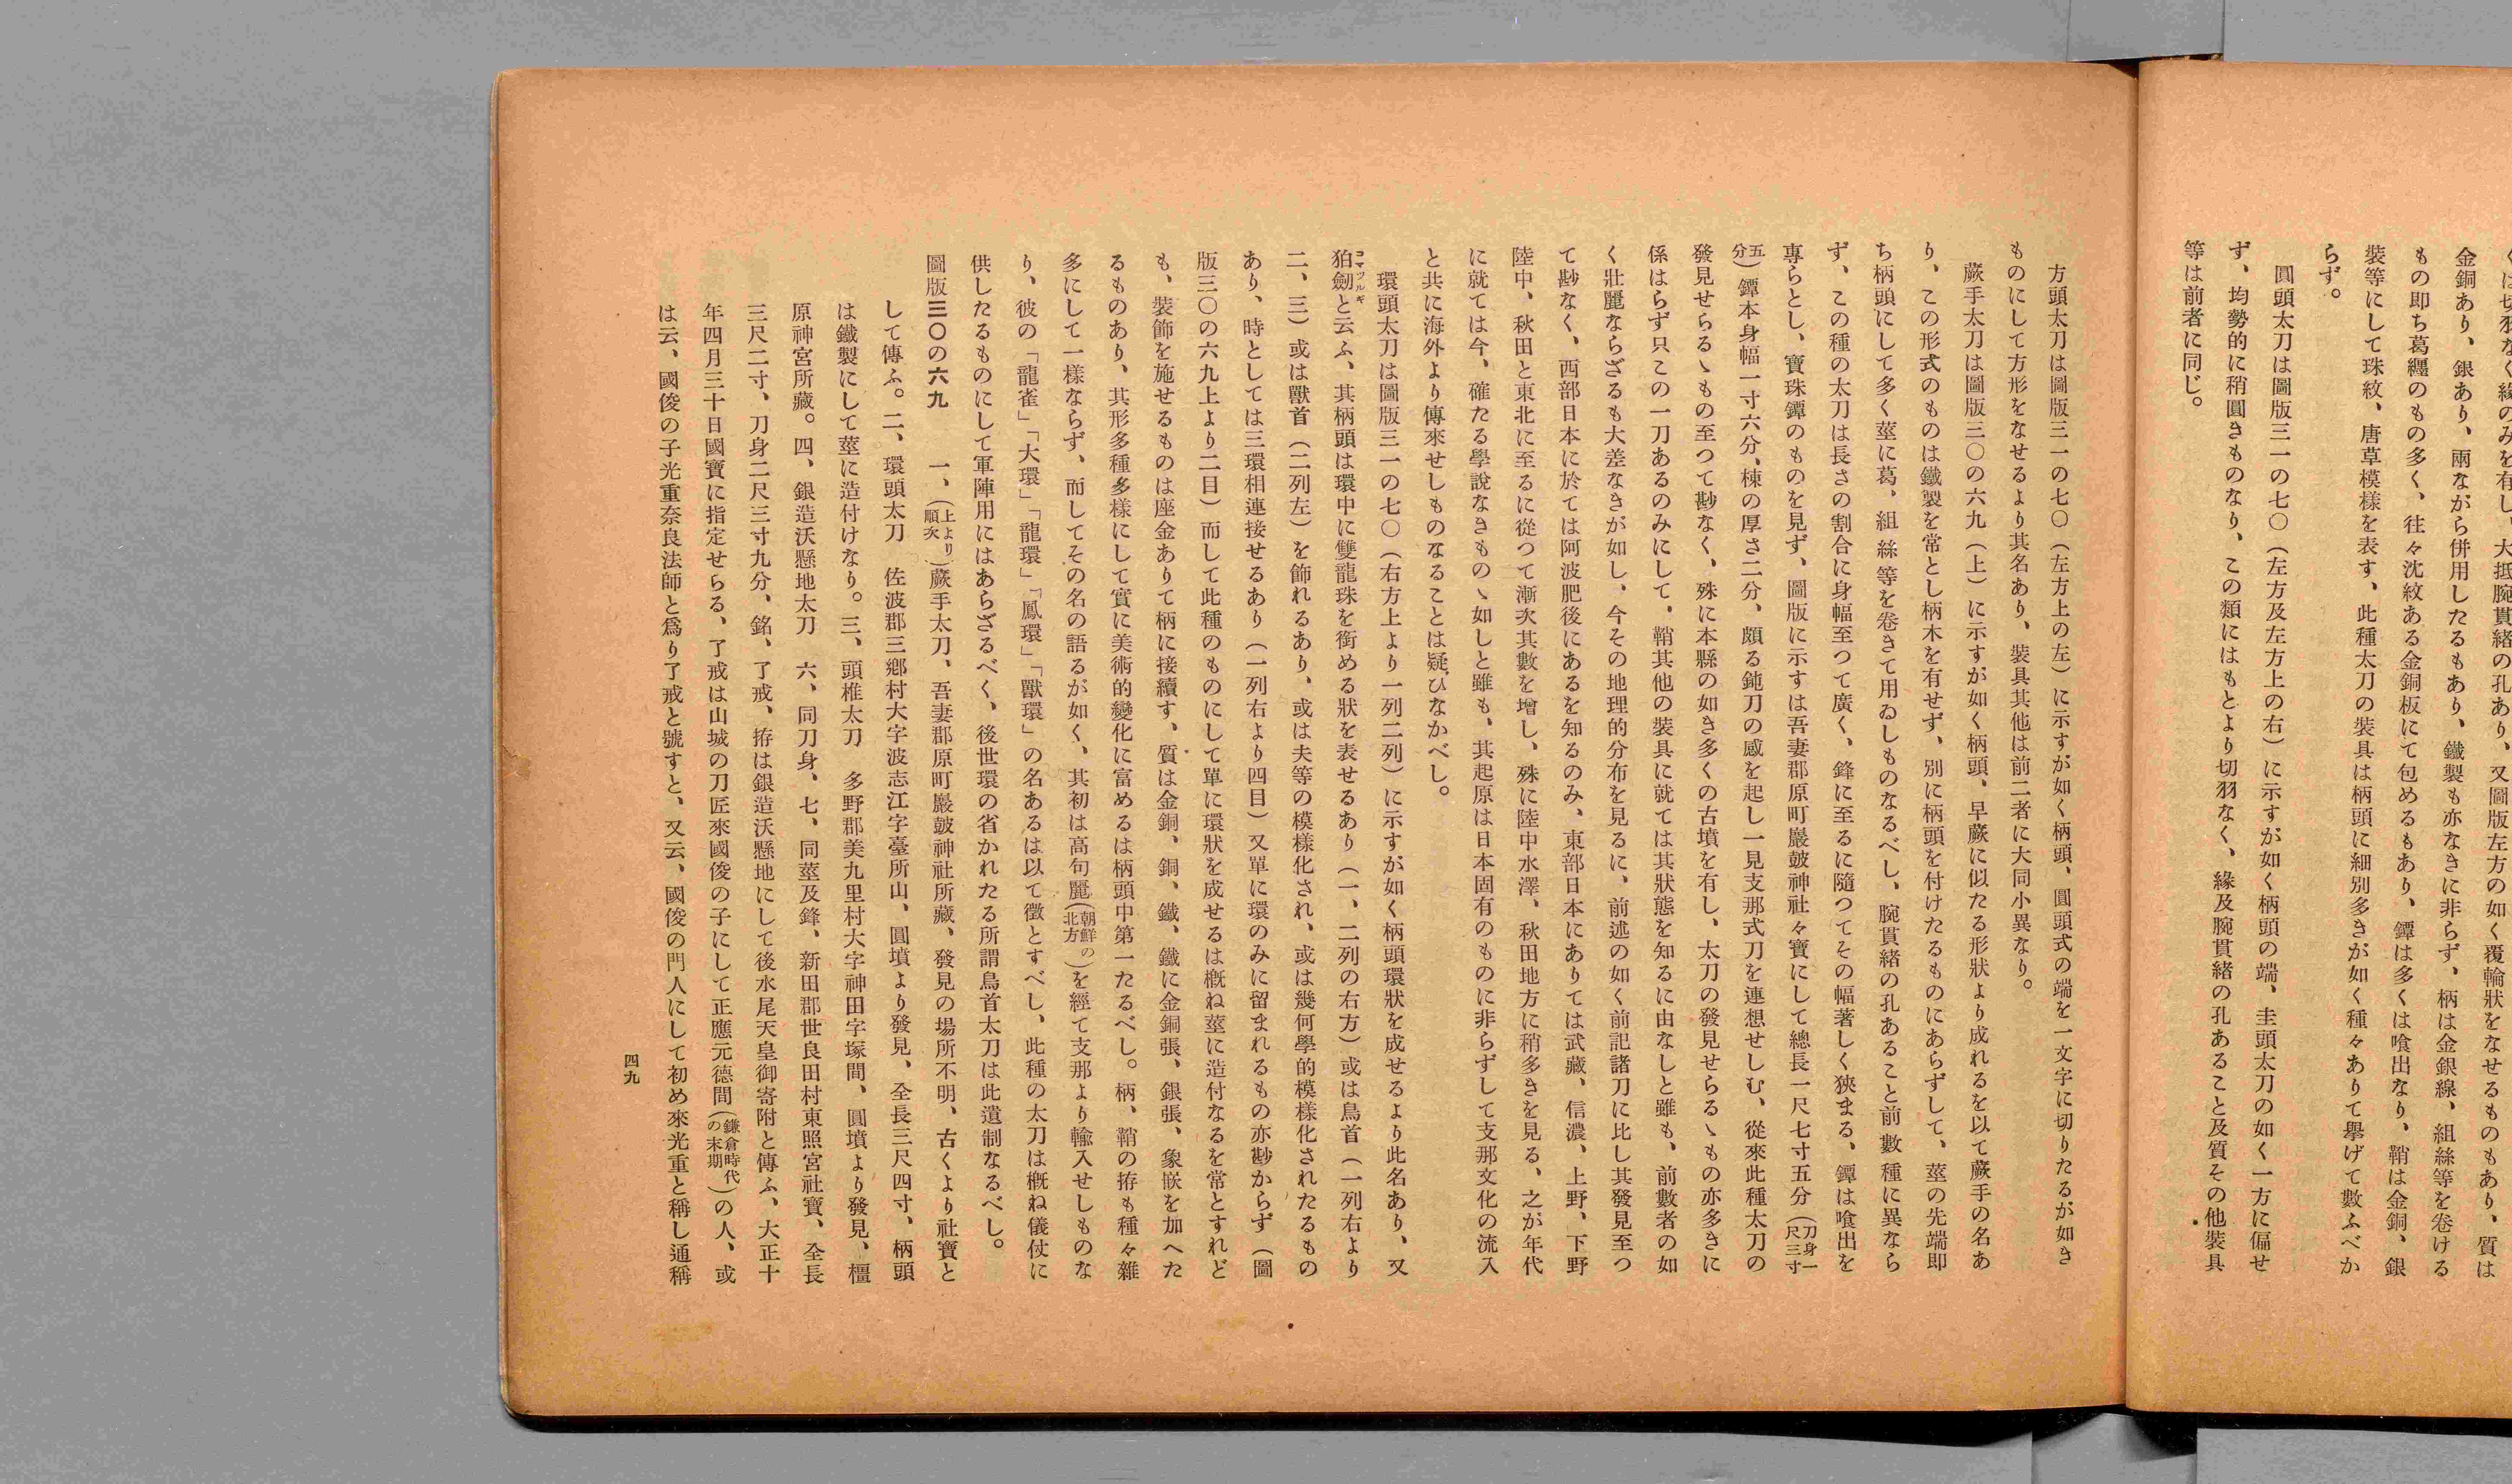 くは切羽なく緣のみを有し、大抵腕貫緒の孔あり、又圖版左方の如く覆輪狀をなせるものもあり、質は
金銅あり、銀あり、兩ながら併用したるもあり、鐵製も亦なきに非らず、柄は金銀線、組絲等を卷ける
もの即ち葛纒のもの多く、往々沈紋ある金銅板にて包めるもあり、鐔は多くは喰出なり、鞘は金銅、銀
裝等にして珠紋、唐草模樣を表す、此種太刀の裝具は柄頭に細別多きが如く種々ありて擧げて數ふべか
らず。
圓頭太刀は圖版三一の七〇（左方及左方上の右）に示すが如く柄頭の端、圭頭太刀の如く一方に偏せ
ず、均勢的に稍圓きものなり、この類にはもとより切羽なく、緣及腕貫緒の孔あること及質その他裝具
等は前者に同じ。
方頭太刀は圖版三一の七〇（左方上の左）に示すが如く柄頭、圓頭式の端を一文字に切りたるが如き
ものにして方形をなせるより其名あり、裝具其他は前二者に大同小異なり。
蕨手太刀は圖版三〇の六九（上）に示すが如く柄頭、早蕨に似たる形狀より成れるを以て蕨手の名あ
り、この形式のものは鐵製を常とし柄木を有せず、別に柄頭を付けたるものにあらずして、莖の先端即
ち柄頭にして多く莖に葛、組絲等を卷きて用ゐしものなるべし、腕貫緒の孔あること前數種に異なら
ず、この種の太刀は長さの割合に身幅至つて廣く、鋒に至るに隨つてその幅著しく狹まる、鐔は喰出を
專らとし、寶珠鐔のものを見ず、圖版に示すは吾妻郡原町巖皷神社々寶にして總長一尺七寸五分（刀身一尺三寸
五分）鐔本身幅一寸六分、棟の厚さ二分、頗る鈍刀の感を起し一見支那式刀を連想せしむ、從來此種太刀の
發見せらるゝもの至つて尠なく、殊に本縣の如き多くの古墳を有し、太刀の發見せらるゝもの亦多きに
係はらず只この一刀あるのみにして、鞘其他の裝具に就ては其狀態を知るに由なしと雖も、前數者の如
く壯麗ならざるも大差なきが如し、今その地理的分布を見るに、前述の如く前記諸刀に比し其發見至つ
て尠なく、西部日本に於ては阿波肥後にあるを知るのみ、東部日本にありては武藏、信濃、上野、下野
陸中、秋田と東北に至るに從つて漸次其數を增し、殊に陸中水澤、秋田地方に稍多きを見る、之が年代
に就ては今、確たる學說なきものゝ如しと雖も、其起原は日本固有のものに非らずして支那文化の流入
と共に海外より傳來せしものなることは疑ひなかべし。
環頭太刀は圖版三一の七〇（右方上より一列二列）に示すが如く柄頭環狀を成せるより此名あり、又
狛劒と云ふ、其柄頭は環中に雙龍珠を銜める狀を表せるあり（一、二列の右方）或は鳥首（一列右より
二、三）或は獸首（二列左）を飾れるあり、或は夫等の模樣化され、或は幾何學的模樣化されたるもの
あり、時としては三環相連接せるあり（一列右より四目）又單に環のみに留まれるもの亦尠からず（圖
版三〇の六九上より二目）而して此種のものにして單に環狀を成せるは槪ね莖に造付なるを常とすれど
も、裝飾を施せるものは座金ありて柄に接續す、質は金銅、銅、鐵、鐵に金銅張、銀張、象嵌を加へた
るものあり、其形多種多樣にして實に美術的變化に富めるは柄頭中第一たるべし。柄、鞘の拵も種々雜
多にして一樣ならず、而してその名の語るが如く、其初は高句麗（朝鮮の北方）を經て支那より輸入せしものな
り、彼の「龍雀」「大環」「龍環」「鳳環」「獸環」の名あるは以て徵とすべし、此種の太刀は槪ね儀仗に
供したるものにして軍陣用にはあらざるべく、後世環の省かれたる所謂鳥首太刀は此遺制なるべし。
圖版三〇の六九　一、（上より順次）蕨手太刀、吾妻郡原町巖皷神社所藏、發見の場所不明、古くより社寶と
して傳ふ。二、環頭太刀　佐波郡三鄕村大字波志江字臺所山、圓墳より發見、全長三尺四寸、柄頭
は鐵製にして莖に造付けなり。三、頭椎太刀　多野郡美九里村大字神田字塚間、圓墳より發見、橿
原神宮所藏。四、銀造沃懸地太刀　六、同刀身、七、同莖及鋒、新田郡世良田村東照宮社寶、全長
三尺二寸、刀身二尺三寸九分、銘、了戒、拵は銀造沃懸地にして後水尾天皇御寄附と傳ふ、大正十
年四月三十日國寶に指定せらる、了戒は山城の刀匠來國俊の子にして正應元德間（鎌倉時代の末期）の人、或
は云、國俊の子光重奈良法師と爲り了戒と號すと、又云、國俊の門人にして初め來光重と稱し通稱
四九